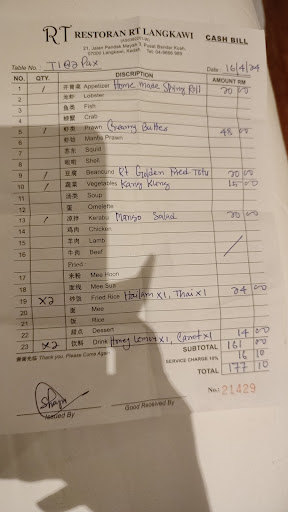 RT RESTORAN RT LANGKAWI CASH BILL
21, Jalan Pandak Mayah 5, Pusat Bandar Kuah,
07000 Langkawi, Kedah.
Table No.: T1B2 Pax Date: 16/4/24
NO. QTY. DISCRIPTION AMOUNT RM
1 / 开胃菜 Appetizer Home Made Spring Roll 20 00
2 龙虾 Lobster
3 鱼类 Fish
4 螃蟹 Crab
5 / 虾类 Prawn Creamy Butter 48 00
6 虾姑 Mantis Prawn
7 苏东 Squid
8 啦啦 Shell
9 / 豆腐 Beancurd RT Golden Med Tofu 20 00
10 / 蔬菜 Vegetables Kang Kung 15 00
11 汤类 Soup
12 蛋 Omelette
13 / 凉拌 Kerabu Mango Salad 20 00
14 鸡肉 Chicken
15 羊肉 Lamb
16 牛肉 Beef
Fried:
17 米粉 Mee Hoon
18 面线 Mee Sua
19 x2 炒饭 Fried Rice Hailam x1, Thai x1 24 00
20 面 Mee
21 饭 Rice
22 甜点 Dessert
23 x2 饮料 Drink Honey Lemon x1, Carrot x1 14 00
谢谢光临 Thank you. Please Come Again
SUBTOTAL 161 00
SERVICE CHARGE 10% 16 10
TOTAL 177 10
No.: 21429
Issued By Good Received By